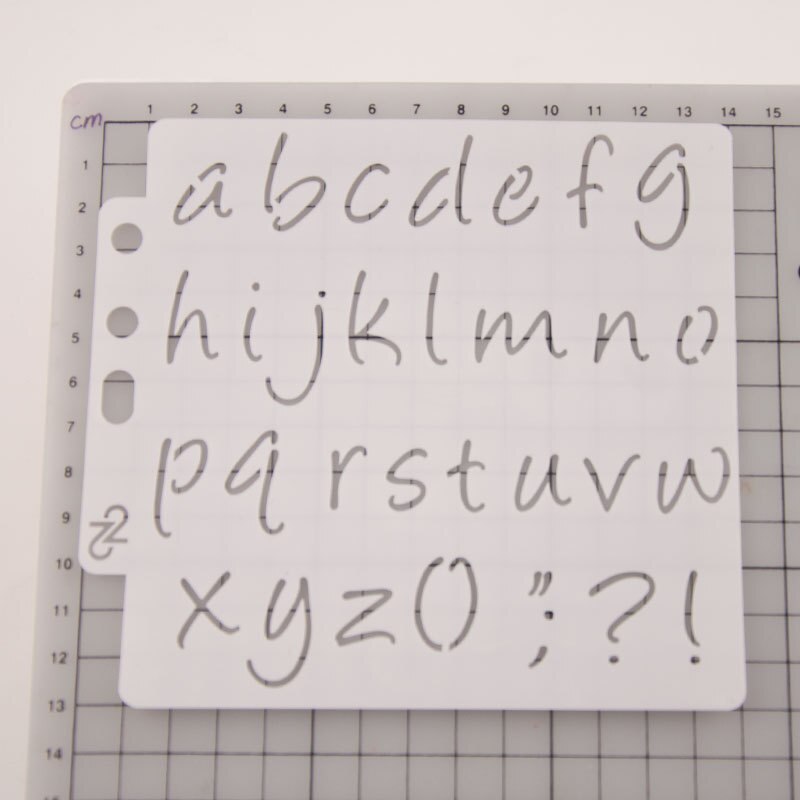 1 2 3 4 5 6 7 8 9 10 11 12 13 14 15
cm
1
2
3
4
5
6
7
8
9
10
11
12
13
14
a b c d e f g
h i j k l m n o
p q r s t u v w
x y z ( ) " ; ? !